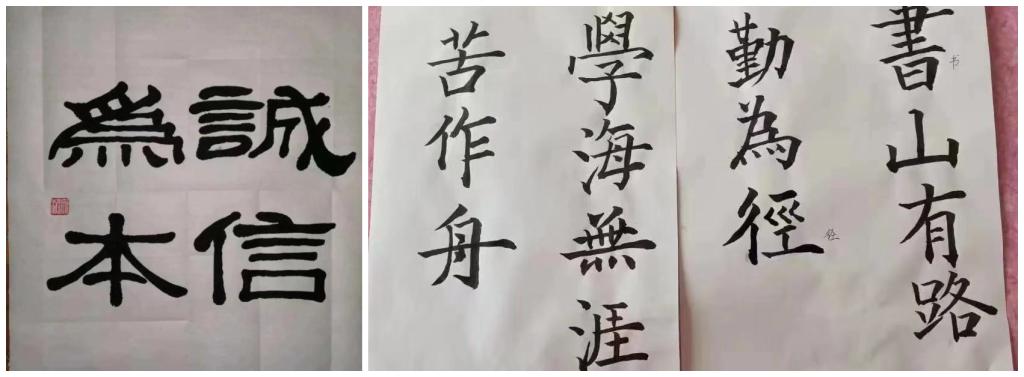 誠信
為本
書山有路
书
勤為徑
學海無涯
苦作舟